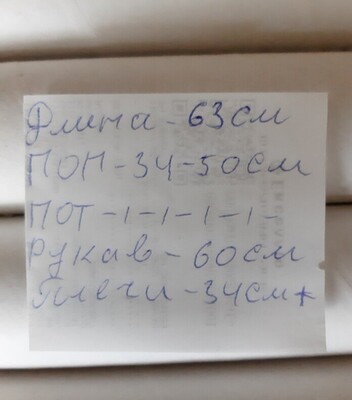 Длина - 63 см
ПОП - 34-50 см
ПОТ -ı-ı-ı-ı-
Рукав - 60 см
Плечи - 34 см*